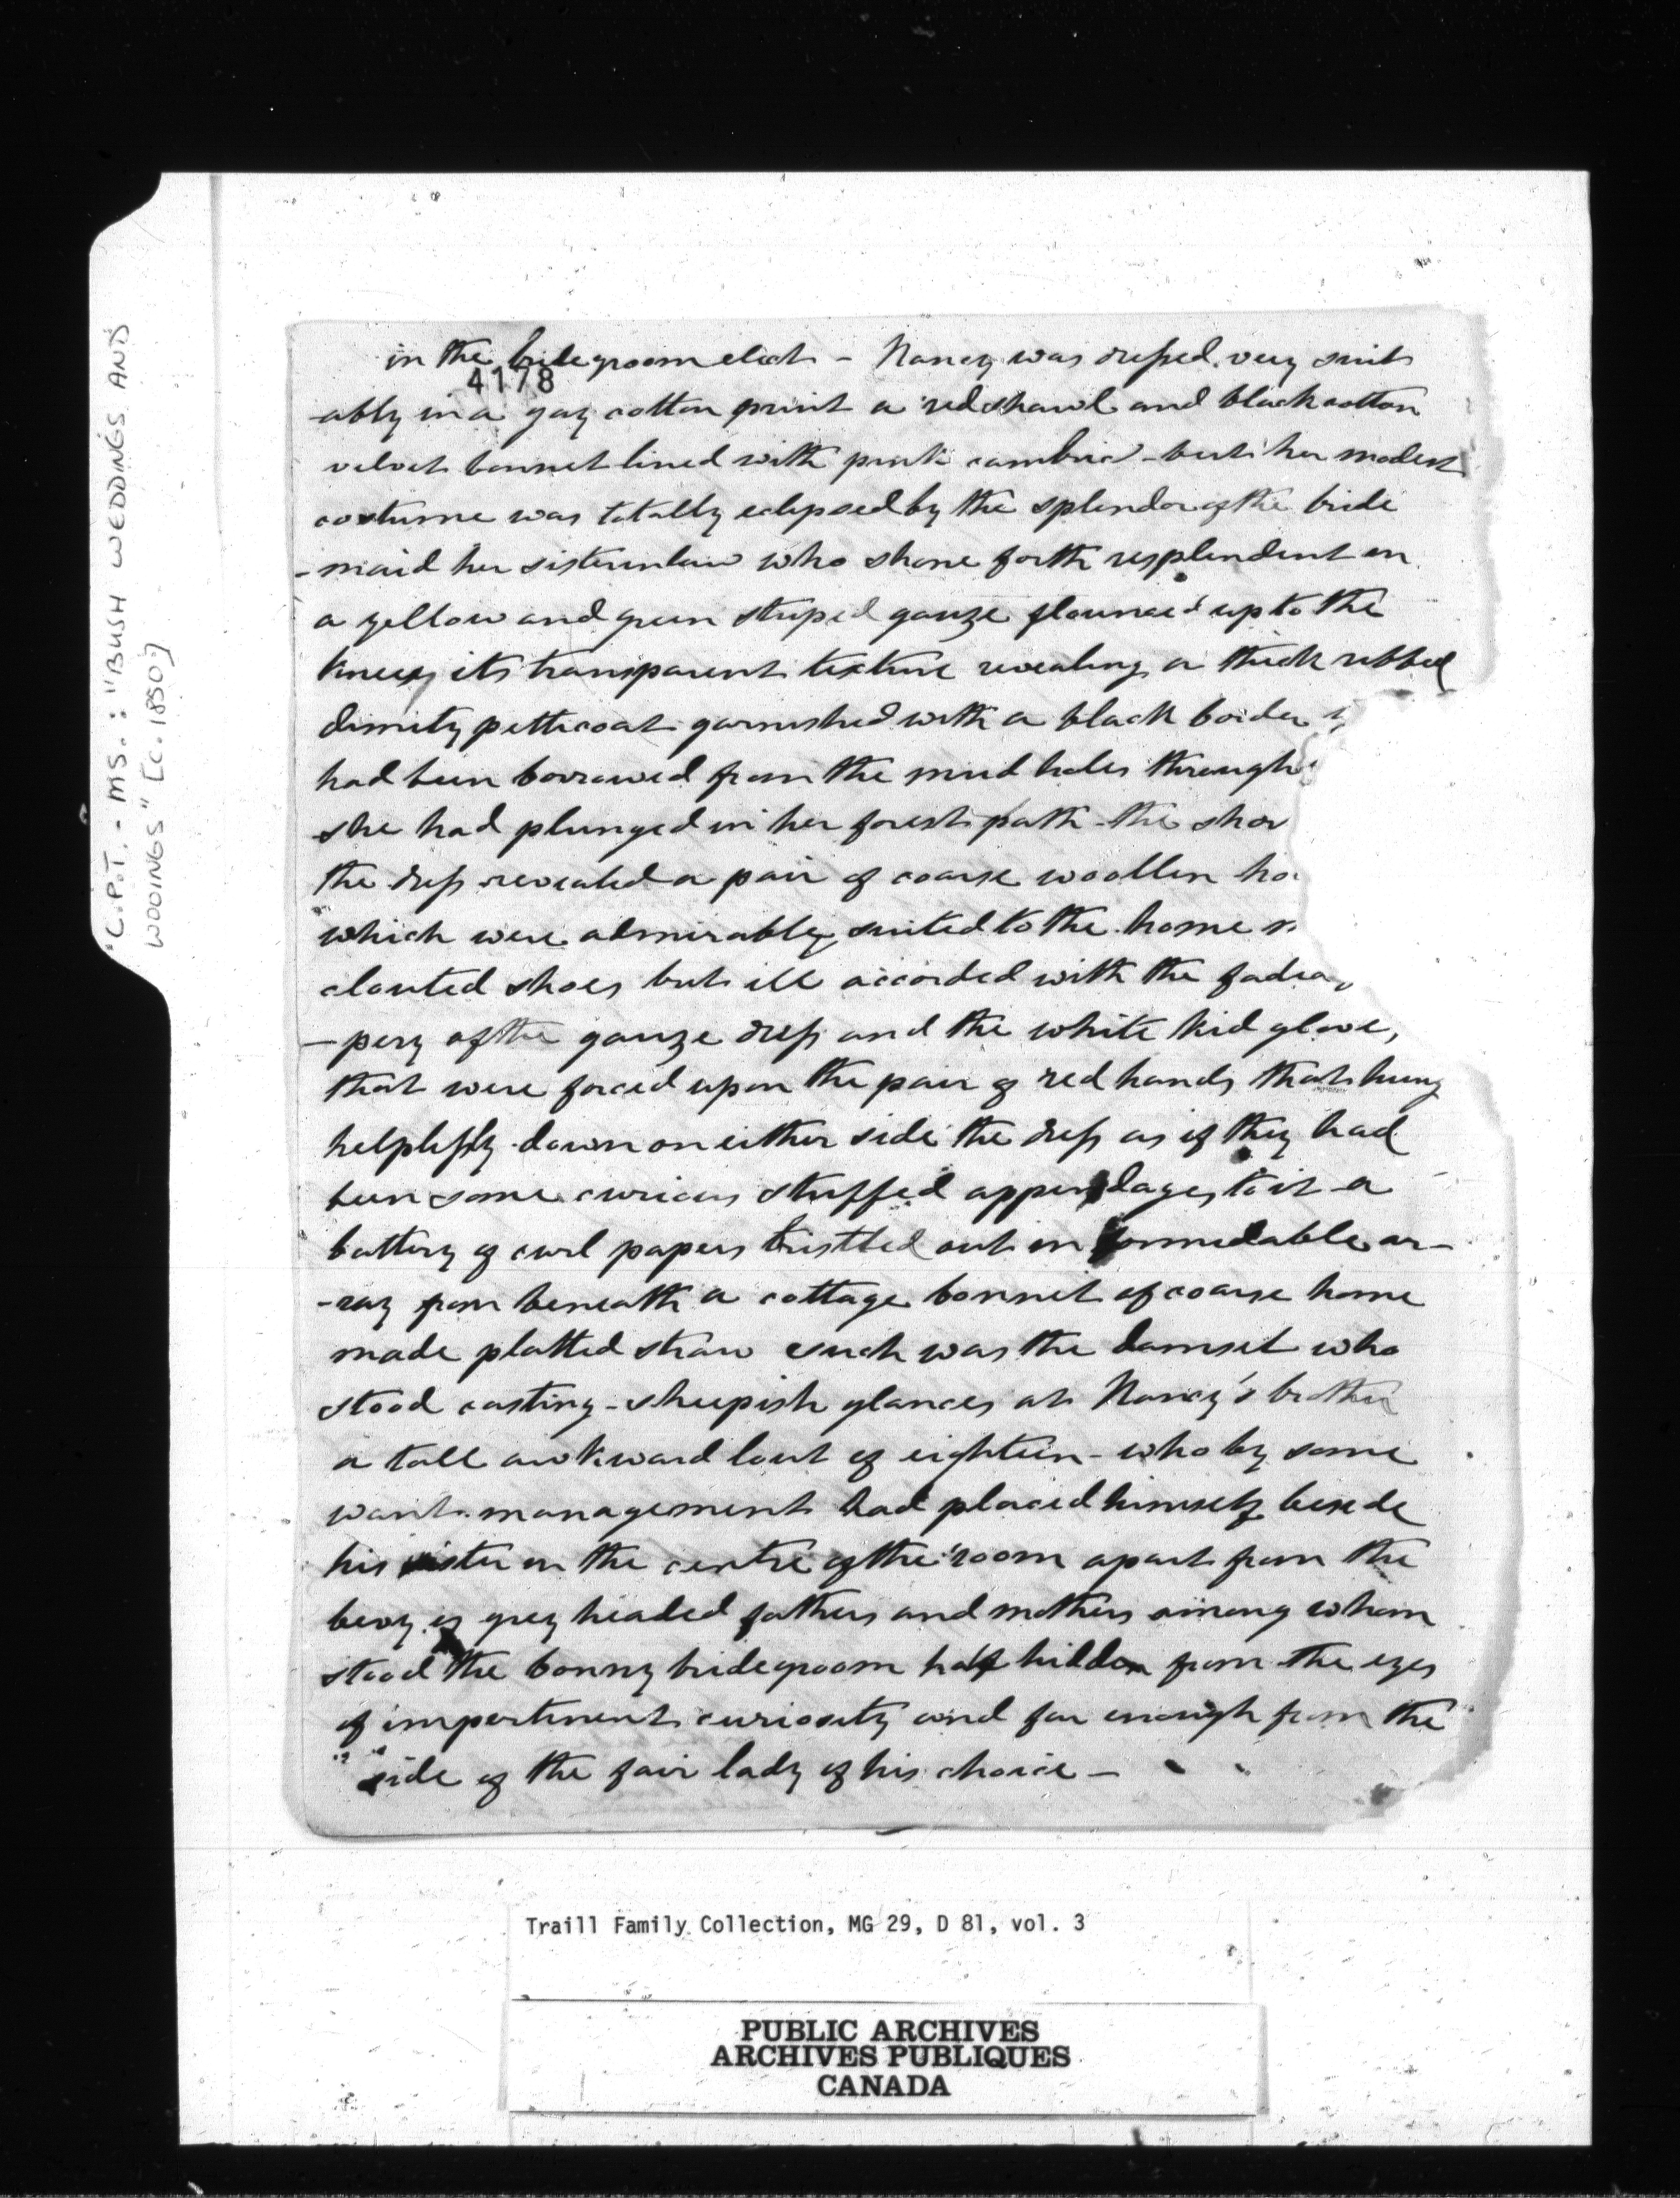 "C.P.T. - MS.: "BUSH WEDDINGS AND
WOOINGS" [c. 1850?]
in the bridegroom elect - Nancy was dressed very suit
4178
-ably in a gay cotton print a red shawl and black cotton
velvet bonnet lined with pink cambric - but her modest
costume was totally eclipsed by the splendor of the bride
-maid her sisterinlaw who shone forth resplendent in
a yellow and green striped gauze flounced up to the
knees, its transparent texture revealing a thick ribbed
dimity petticoat garnished with a black border
had been borrowed from the mud holes through
she had plunged in her forest path - the shor
the dress revealed a pair of coarse woollen ho
which were admirably suited to the home m
clouted shoes but ill accorded with the fadra
-pery of the gauze dress and the white kid glove,
that were forced upon the pair of red hands that hung
helplessly down on either side the dress as if they had
been some curious stuffed appendages to it - a
battery of curl papers bristled out in formidable ar-
-ray from beneath a cottage bonnet of coarse home
made platted straw such was the damsel who
stood casting - sheepish glances at Nancy's brother
a tall awkward lout of eighteen - who by some
want management had placed himself beside
his sister in the centre of the room apart from the
bevy of grey headed fathers and mothers among whom
stood the bonny bridegroom half hidden from the eyes
of impertinent curiosity and far enough from the
side of the fair lady of his choice -
Traill Family Collection, MG 29, D 81, vol. 3
PUBLIC ARCHIVES
ARCHIVES PUBLIQUES
CANADA